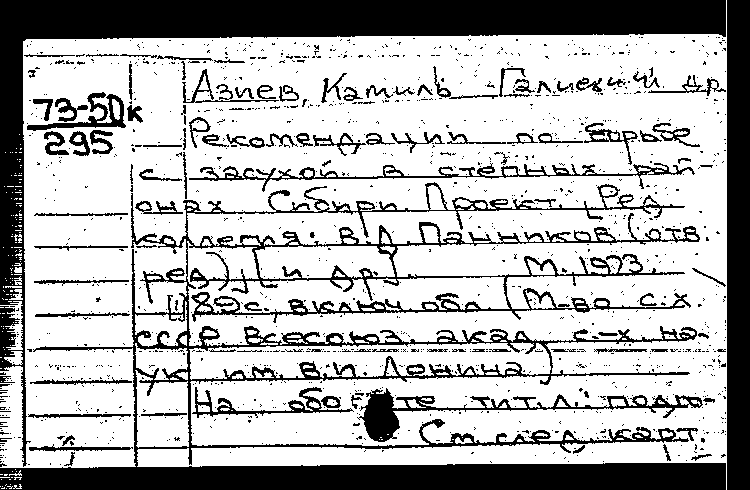 73-50к
295
Азиев, Камиль Галиевич и др
Рекомендации по борьбе
с засухой в степных рай-
онах Сибири Проект. [Ред.
коллегия: В.Д. Панников (отв.
ред), [и др.]. М., 1973.
89с., включ. обл (М-во с.х.
СССР Всесоюз. акад. с.-х. на-
ук им. В.И. Ленина).
На обороте тит. л.: подго-
См след. карт.